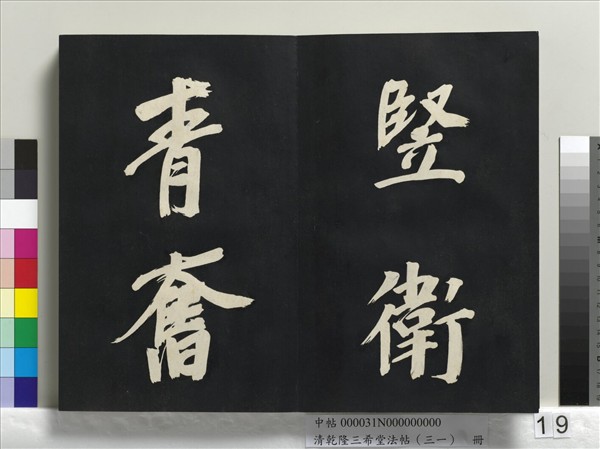 竪
衛
青
奮
中帖 000031N000000000
清乾隆三希堂法帖（三一） 冊
19